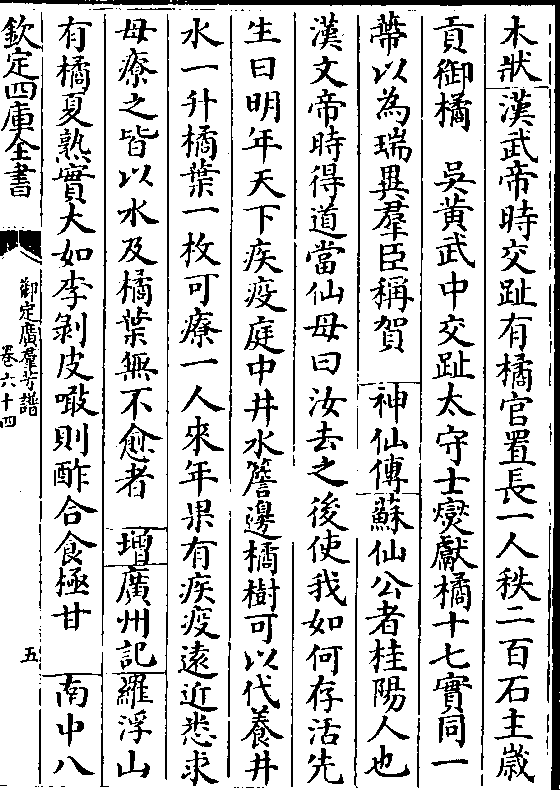 木狀漢武帝時交趾有橘官置長一人秩二百石主嵗
貢御橘　吳黄武中交趾太守士燮獻橘十七實同一
蔕以為瑞異羣臣稱賀　神仙傳蘇仙公者桂陽人也
漢文帝時得道當仙母曰汝去之後使我如何存活先
生曰明年天下疾疫庭中井水簷邊橘樹可以代養井
水一升橘葉一枚可療一人來年果有疾疫逺近悉求
母療之皆以水及橘葉無不愈者　増廣州記羅浮山
有橘夏熟實大如李剝皮噉則酢合食極甘　南中八
欽定四庫全書
御定廣羣芳譜
卷六十四
五